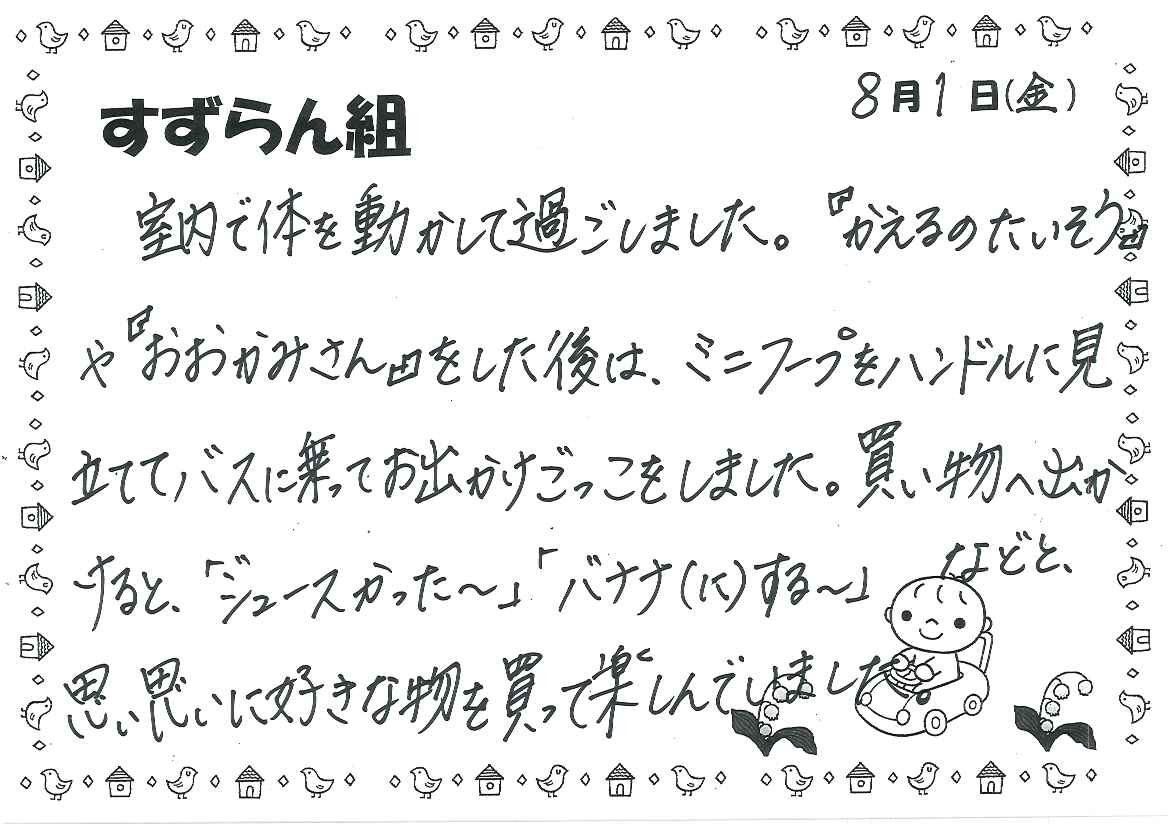 すずらん組
8月1日(金)
室内で体を動かして過ごしました。『かえるのたいそう』
や『おおかみさん』をした後は、ミニフープをハンドルに見
立ててバスに乗ってお出かけごっこをしました。買い物へ出か
けると、「ジュースかった~」「バナナ(に)する~」などと、
思い思いに好きな物を買って楽しんでいました。